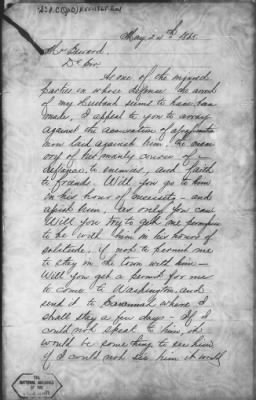 May 24th 1865
Seward.
Dr Sir.
As one of the injured
parties in whose defense the arrest
of my Husband seems to have been
made, I appeal to you to array
against the accusation of assassination
now laid against him, the mem-
ory of his manly course of
defiance to enemies, and faith
to friends. Will you go to him
in his hour of necessity - and
assist him, as only you can
Will you try to get me permission
to be with him in his hours of
solitude, if not to permit me
to stay in the town with him -
Will you get a permit for me
to come to Washington, and
send it to Savannah where I
shall stay a few days - If I
could not speak to him, it
would be something to see him
if I could not see him it would
THE
NATIONAL ARCHIVES
OF THE